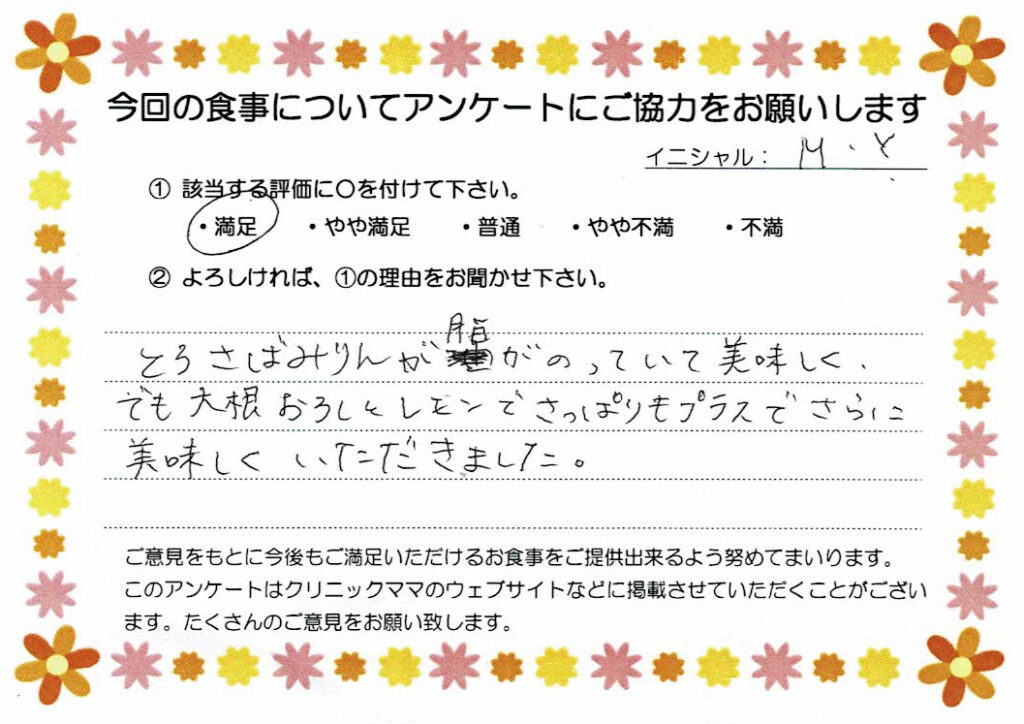 今回の食事についてアンケートにご協力をお願いします
イニシャル： M．Y
① 該当する評価に〇を付けて下さい。
・満足 ・やや満足 ・普通 ・やや不満 ・不満
② よろしければ、①の理由をお聞かせ下さい。
とろさばみりんが脂がのっていて美味しく、
でも大根おろしとレモンでさっぱりもプラスでさらに
美味しくいただきました。
ご意見をもとに今後もご満足いただけるお食事をご提供出来るよう努めてまいります。
このアンケートはクリニックママのウェブサイトなどに掲載させていただくことがござい
ます。たくさんのご意見をお願い致します。